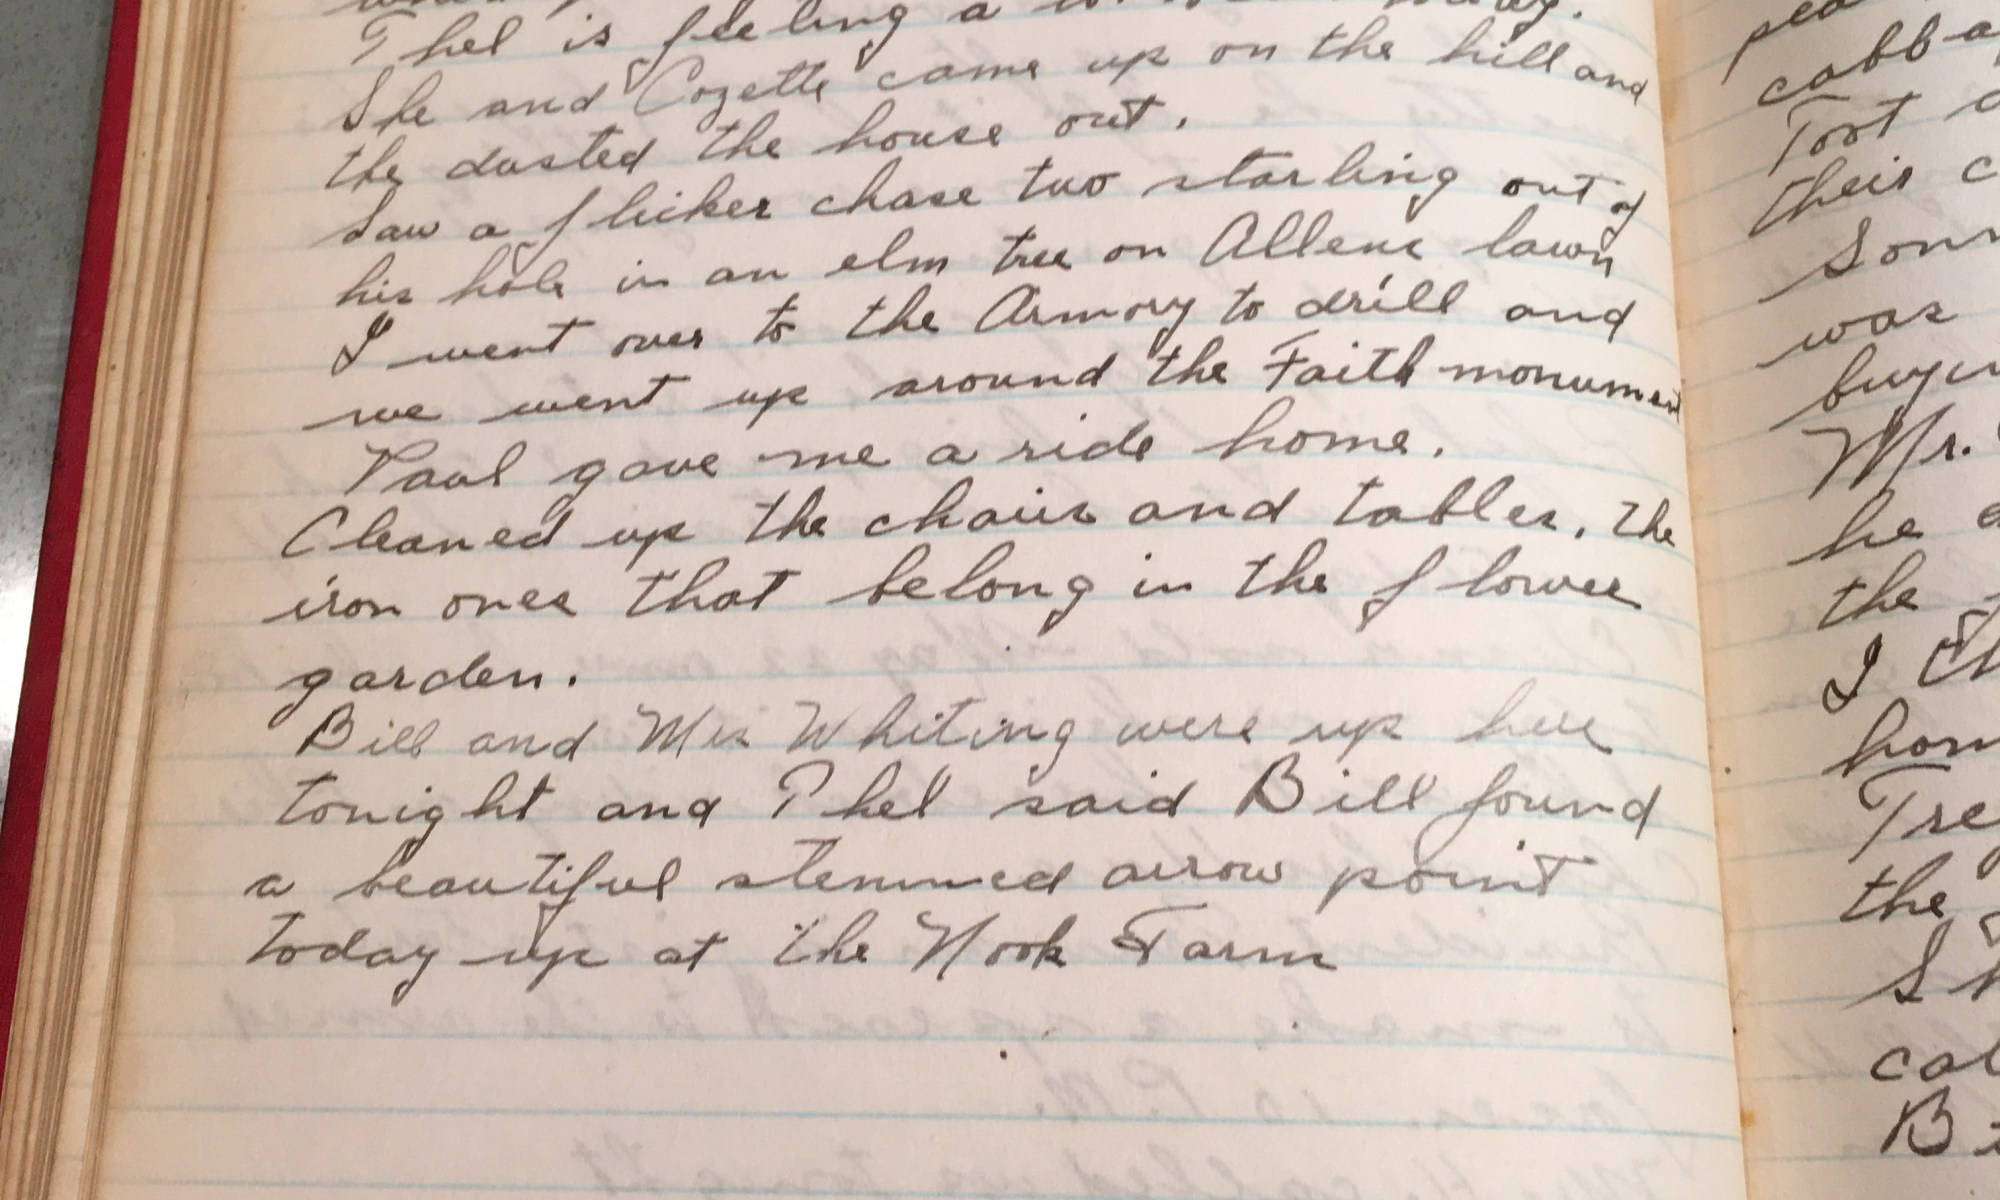 Phel is feeling a
She and Cozette came up on the hill and
the dusted the house out.
Saw a fliker chase two starling out of
his hole in an elm tree on Allens lawn
I went over to the Armory to drill and
we went up around the Faith monument
Paul gave me a ride home.
Cleaned up the chairs and tables, the
iron ones that belong in the flower
garden.
Bill and Mrs Whiting were up here
tonight and Phel said Bill found
a beautiful stemmed arrow point
today up at the Nook Farm
Toot
their c
was
Mr.
he
the
I
the